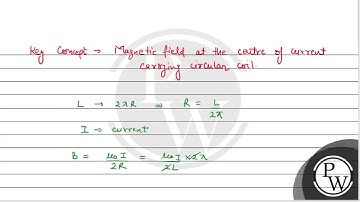 Key Concept → Magnetic field at the centre of current
carrying circular coil.
L → 2πR ⇒ R = L/2π
I → current
B = μ₀I/2R = μ₀I×2π/2L
PW